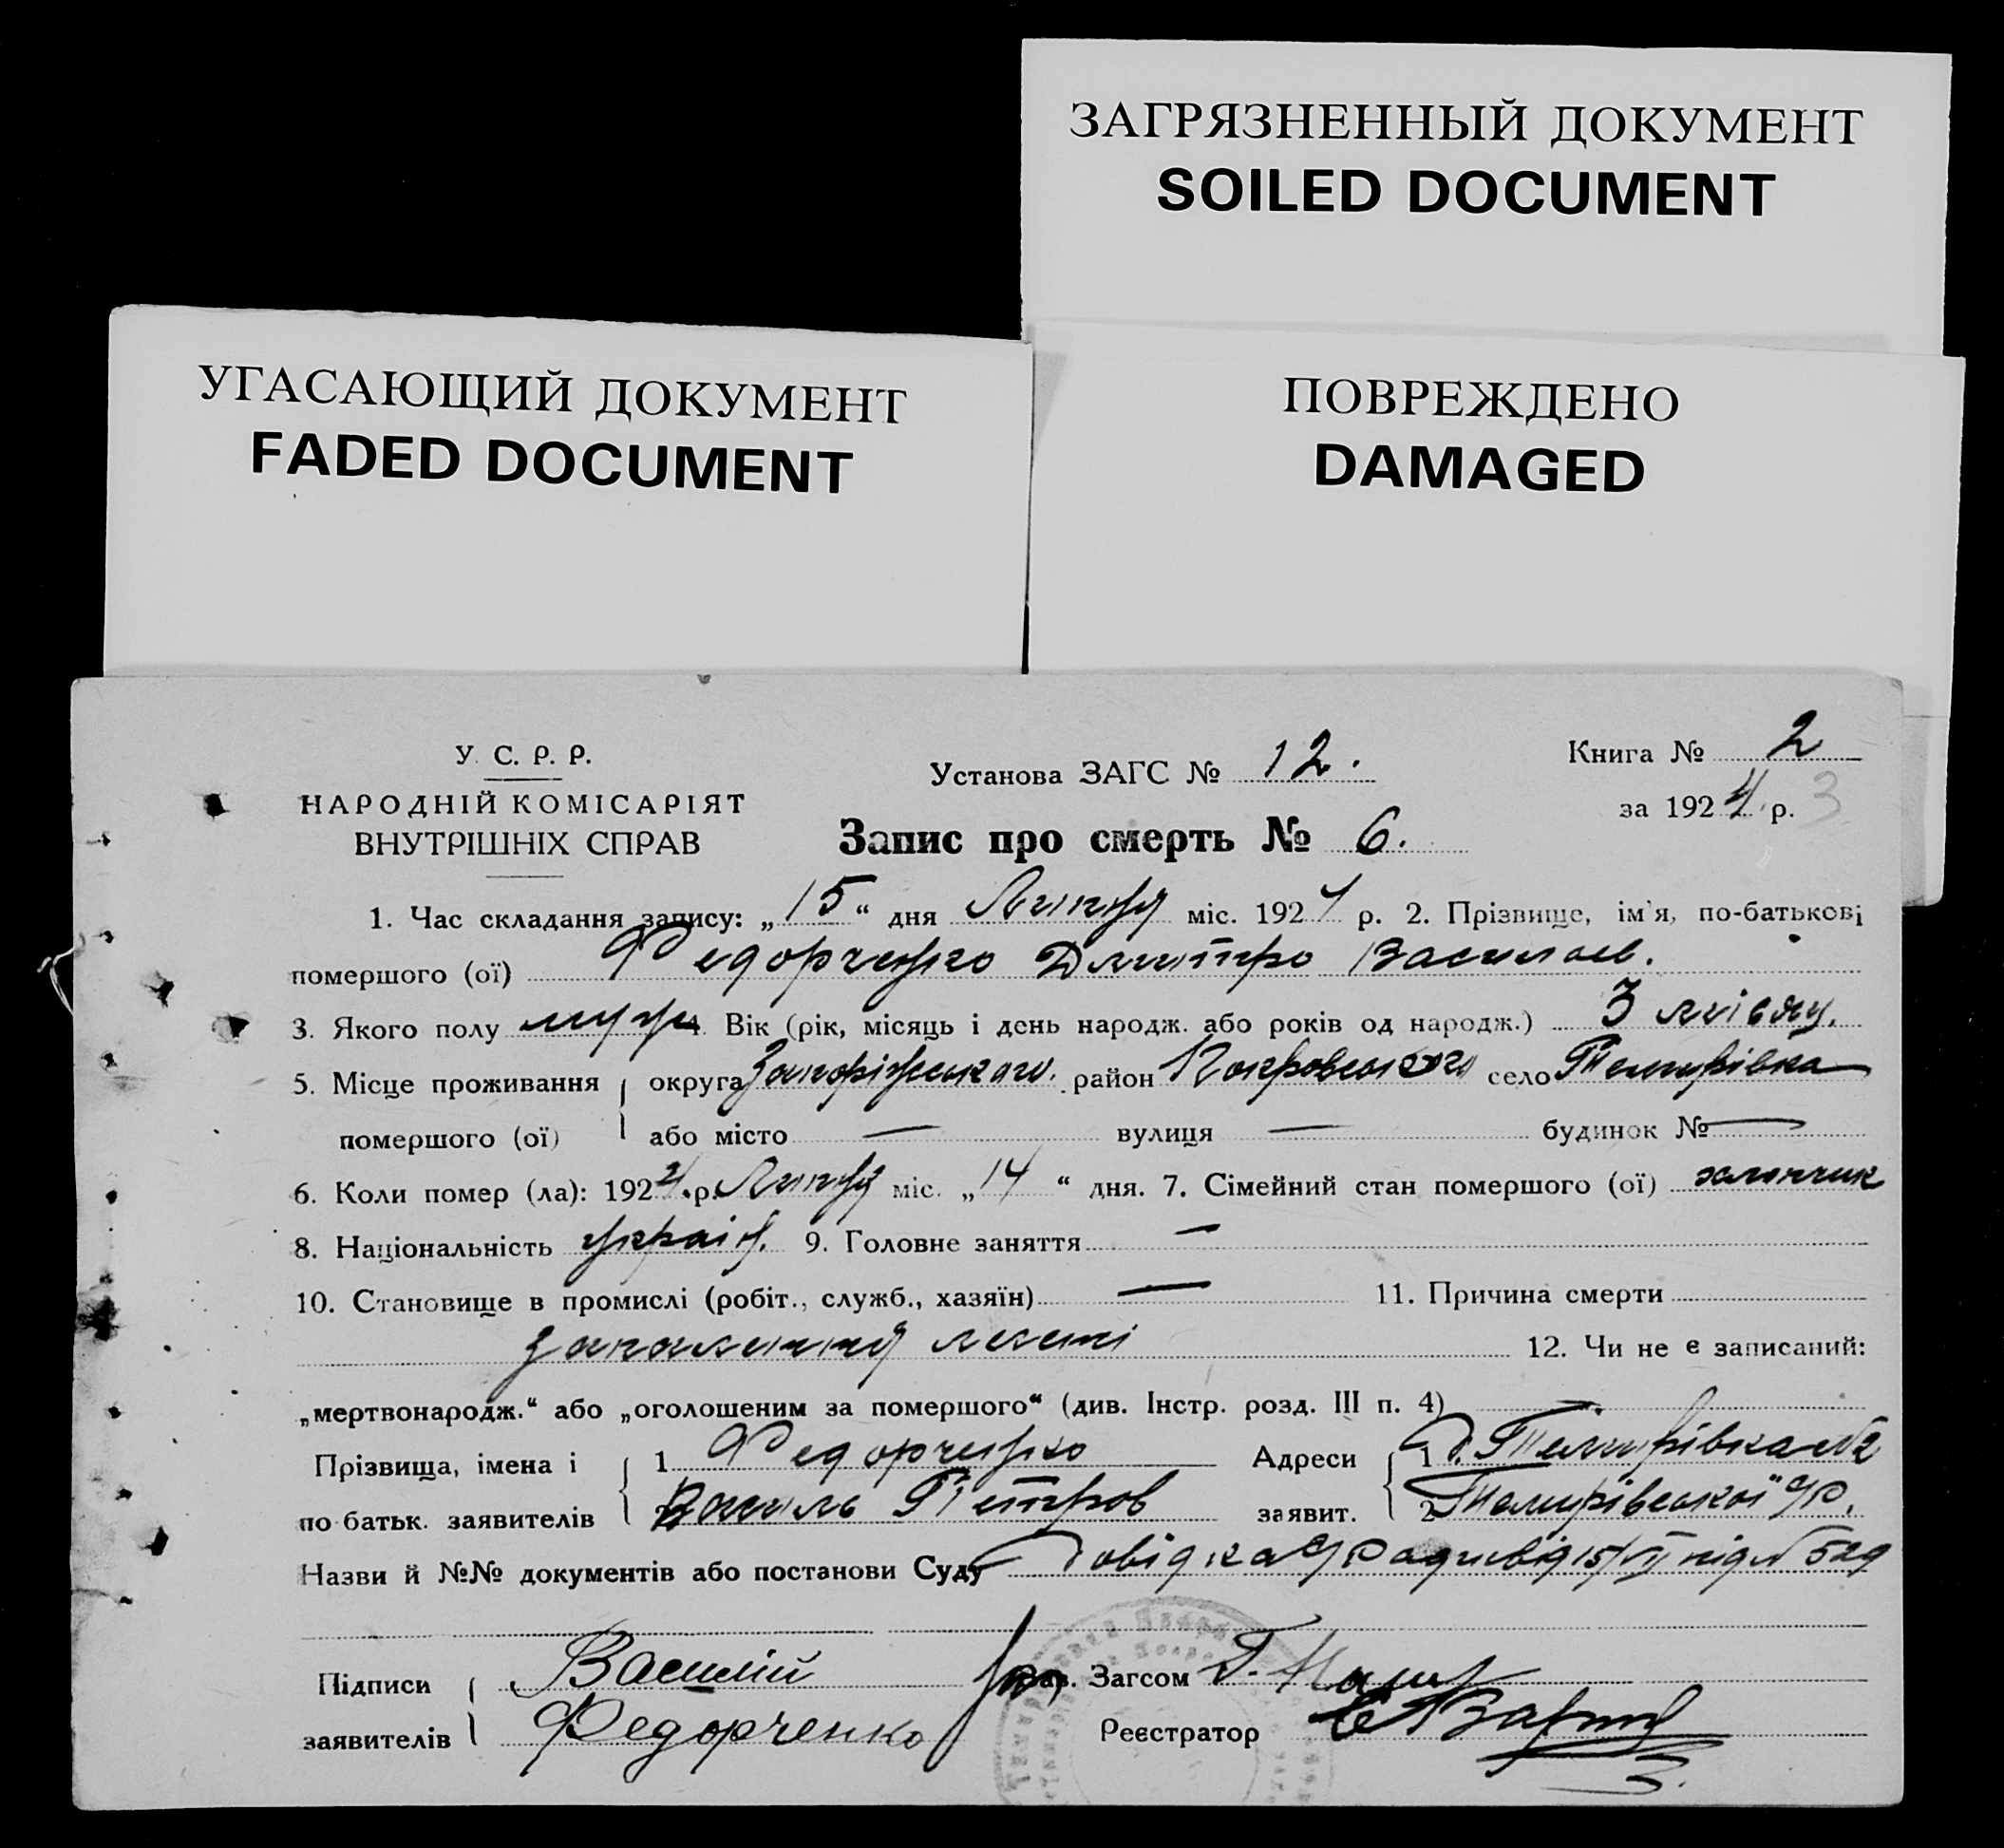 ЗАГРЯЗНЕННЫЙ ДОКУМЕНТ
SOILED DOCUMENT
УГАСАЮЩИЙ ДОКУМЕНТ
FADED DOCUMENT
ПОВРЕЖДЕНО
DAMAGED
У. С. Р. Р.
НАРОДНІЙ КОМІСАРІЯТ
ВНУТРІШНІХ СПРАВ
Установа ЗАГС № 12.
Книга № 2
за 1924 р. 3
Запис про смерть № 6.
1. Час складання запису: „15“ дня Липня міс. 1924 р. 2. Прізвище, ім'я, по-батькові
помершого (ої) Федорченко Дмитро Васильєв.
3. Якого полу муж 4. Вік (рік, місяць і день народж. або років од народж.) 3 місяц.
5. Місце проживання округа Запоріжського. район Покровського село Темирівка
помершого (ої) або місто — вулиця — будинок № —
6. Коли помер (ла): 1924 р. Липня міс. „14“ дня. 7. Сімейний стан помершого (ої) хлопчик
8. Національність україн. 9. Головне заняття —
10. Становище в промислі (робіт., служб., хазяїн) — 11. Причина смерти
запалення легені 12. Чи не є записаний:
„мертвонародж.“ або „оголошеним за помершого“ (див. Інстр. розд. III п. 4) —
Прізвища, імена і 1 Федорченко Адреси 1 с. Темирівка
по батьк. заявителів 2 Василь Петров заявит. 2 Темирівської
Назви й №№ документів або постанови Суду Довідка від 15/VII під № 529
Підписи Василій Зав. Загсом
заявителів Федорченко Реєстратор